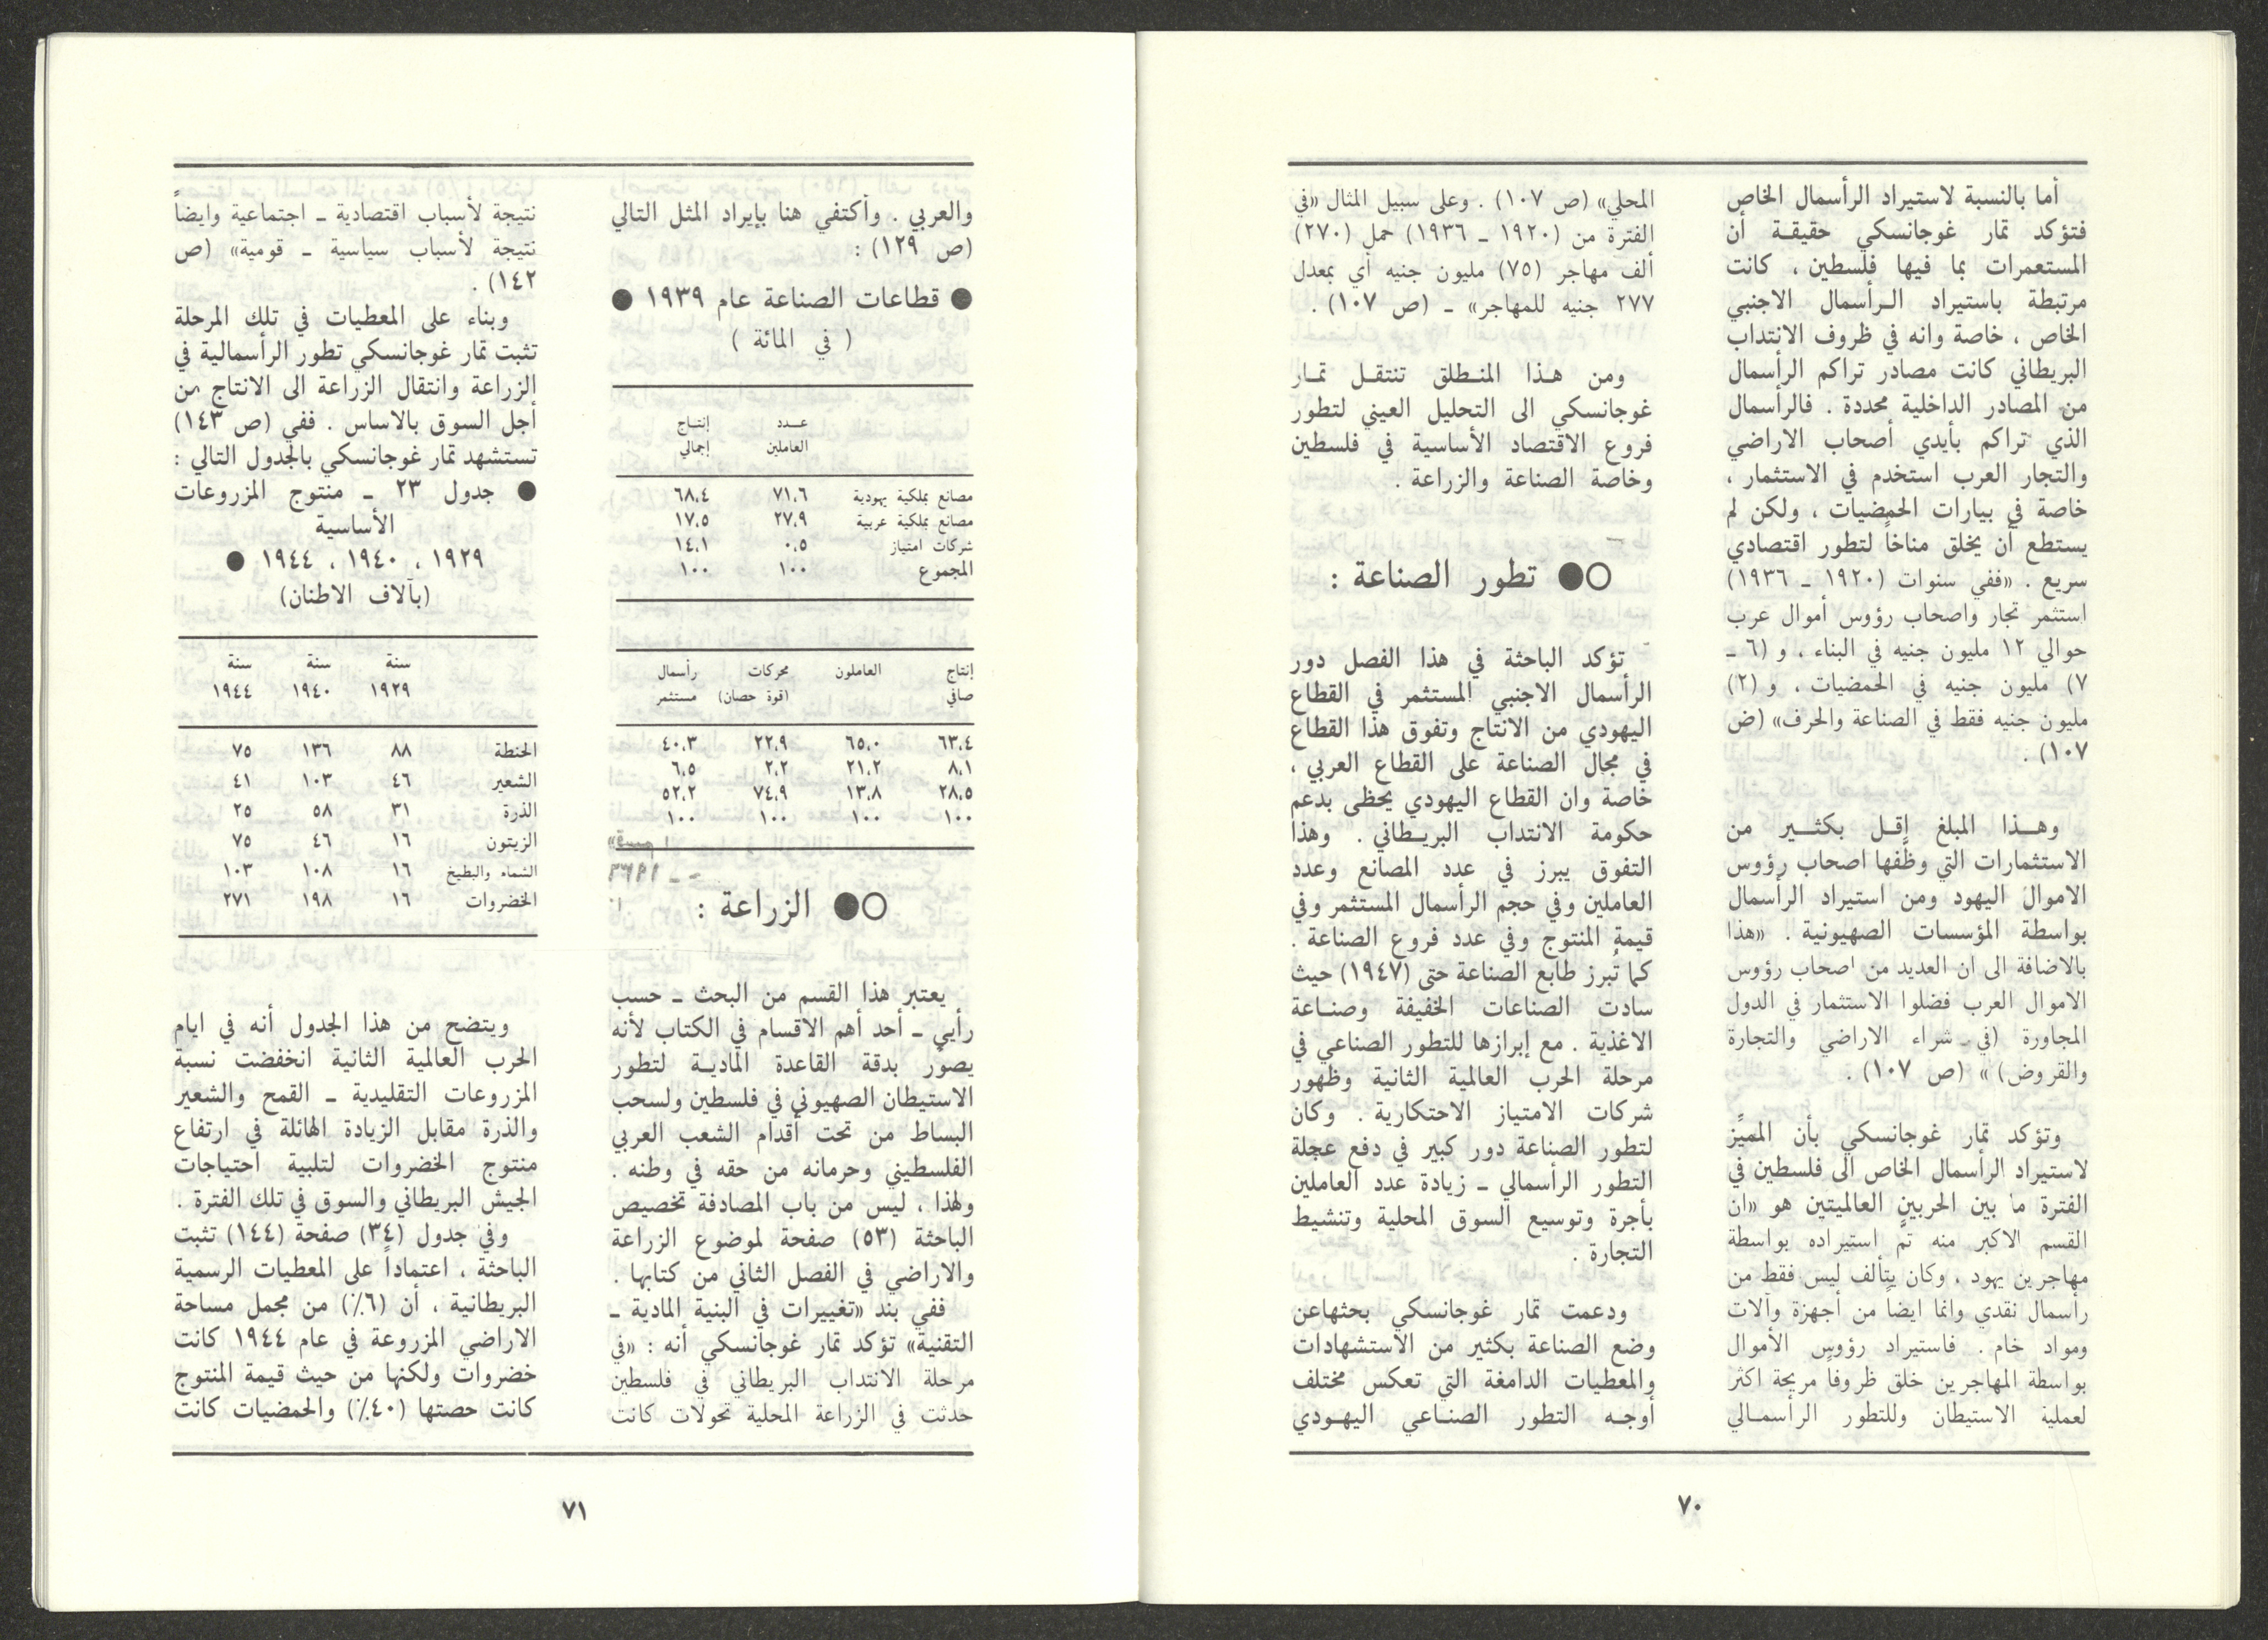 أما بالنسبة لاستيراد الرأسمال الخاص
فتؤكد تمار غوجانسكي حقيقـة أن
المستعمرات بما فيها فلسطين ، كانت
مرتبطة باستيراد الـرأسمال الاجنبي
الخاص ، خاصة وانه في ظروف الانتداب
البريطاني كانت مصادر تراكم الرأسمال
من المصادر الداخلية محددة . فالرأسمال
الذي تراكم بأيدي أصحاب الاراضي
والتجار العرب استخدم في الاستثمار ،
خاصة في بيارات الحمضيات ، ولكن لم
يستطع أن يخلق مناخاً لتطور اقتصادي
سريع . «ففي سنوات (١٩٢٠ ـ ١٩٣٦)
استثمر تجار واصحاب رؤوس أموال عرب
حوالي ١٢ مليون جنيه في البناء ، و (٦ ـ
٧) مليون جنيه في الحمضيات ، و (٢)
مليون جنيه فقط في الصناعة والحرف» (ض
١٠٧) .
وهـــذا المبلغ اقــل بكثـــير من
الاستثمارات التي وظّفها اصحاب رؤوس
الاموال اليهود ومن استيراد الرأسمال
بواسطة المؤسسات الصهيونية . «هذا
بالاضافة الى ان العديد من اصحاب رؤوس
الاموال العرب فضلوا الاستثمار في الدول
المجاورة (في شراء الاراضي والتجارة
والقروض) » (ص ١٠٧) .
وتؤكد تمار غوجانسكي بأن المميّز
لاستيراد الرأسمال الخاص الى فلسطين في
الفترة ما بين الحربين العالميتين هو «ان
القسم الاكبر منه تمّ استيراده بواسطة
مهاجرين يهود ، وكان يتألف ليس فقط من
رأسمال نقدي وانما ايضاً من أجهزة وآلات
ومواد خام . فاستيراد رؤوس الأموال
بواسطة المهاجرين خلق ظروفاً مريحة اكثر
لعملية الاستيطان وللتطور الرأسمـالي
المحلي» (ص ١٠٧) . وعلى سبيل المثال «في
الفترة من (١٩٢٠ ـ ١٩٣٦) حمل (٢٧٠)
ألف مهاجر (٧٥) مليون جنيه أي بمعدل
٢٧٧ جنيه للمهاجر» ـ (ص ١٠٧) .
ومن هـذا المنـطلق تنتقـل تمـار
غوجانسكي الى التحليل العيني لتطور
فروع الاقتصاد الأساسية في فلسطين
وخاصة الصناعة والزراعة .
○● تطور الصناعة :
تؤكد الباحثة في هذا الفصل دور
الرأسمال الاجنبي المستثمر في القطاع
اليهودي من الانتاج وتفوق هذا القطاع
في مجال الصناعة على القطاع العربي ،
خاصة وان القطاع اليهودي يحظى بدعم
حكومة الانتداب البريـطاني . وهذا
التفوق يبرز في عدد المصانع وعدد
العاملين وفي حجم الرأسمال المستثمر وفي
قيمة المنتوج وفي عدد فروع الصناعة .
كما تُبرز طابع الصناعة حتى (١٩٤٧) حيث
سادت الصناعات الخفيفة وصنـاعة
الاغذية . مع إبرازها للتطور الصناعي في
مرحلة الحرب العالمية الثانية وظهور
شركات الامتياز الاحتكارية . وكان
لتطور الصناعة دور كبير في دفع عجلة
التطور الرأسمالي ـ زيادة عدد العاملين
بأجرة وتوسيع السوق المحلية وتنشيط
التجارة .
ودعمت تمار غوجانسكي بحثهاعن
وضع الصناعة بكثير من الاستشهادات
والمعطيات الدامغة التي تعكس مختلف
أوجـه التطور الصنـاعي اليهـودي
٧٠
والعربي . وأكتفي هنا بإيراد المثل التالي
(ص ١٢٩) :
● قطاعات الصناعة عام ١٩٣٩ ●
( في المائة )
عـدد إنتـاج
العاملين إجمالي
مصانع بملكية يهودية ٧١،٦ ٦٨،٤
مصانع بملكية عربية ٢٧،٩ ١٧،٥
شركات امتياز ٠،٥ ١٤،١
المجموع ١٠٠ ١٠٠
إنتاج العاملون محركات رأسمال
صافي (قوة حصان) مستثمر
٦٣،٤ ٦٥،٠ ٢٢،٩ ٤٠،٣
٨،١ ٢١،٢ ٢،٢ ٦،٥
٢٨،٥ ١٣،٨ ٧٤،٩ ٥٢،٢
١٠٠ ١٠٠ ١٠٠ ١٠٠
○● الزراعة :
يعتبر هذا القسم من البحث ـ حسب
رأيي ـ أحد أهم الاقسام في الكتاب لأنه
يصوّر بدقة القاعدة الماديـة لتطور
الاستيطان الصهيوني في فلسطين ولسحب
البساط من تحت أقدام الشعب العربي
الفلسطيني وحرمانه من حقه في وطنه .
ولهذا ، ليس من باب المصادفة تخصيص
الباحثة (٥٣) صفحة لموضوع الزراعة
والاراضي في الفصل الثاني من كتابها .
ففي بند «تغييرات في البنية المادية ـ
التقنية» تؤكد تمار غوجانسكي أنه : «في
مرحلة الانتداب البريطاني في فلسطين
حدثت في الزراعة المحلية تحولات كانت
نتيجة لأسباب اقتصادية ـ اجتماعية وايضاً
نتيجة لأسباب سياسية ـ قومية» (ص
١٤٢) .
وبناء على المعطيات في تلك المرحلة
تثبت تمار غوجانسكي تطور الرأسمالية في
الزراعة وانتقال الزراعة الى الانتاج من
أجل السوق بالاساس . ففي (ص ١٤٣)
تستشهد تمار غوجانسكي بالجدول التالي :
● جدول ٢٣ ـ منتوج المزروعات
الأساسية
١٩٢٩ ، ١٩٤٠ ، ١٩٤٤ ●
(بآلاف الاطنان)
سنة سنة سنة
١٩٢٩ ١٩٤٠ ١٩٤٤
الحنطة ٨٨ ١٣٦ ٧٥
الشعير ٤٦ ١٠٣ ٤١
الذرة ٣١ ٥٨ ٢٥
الزيتون ١٦ ٤٦ ٧٥
الشمام والبطيخ ١٦ ١٠٨ ١٠٣
الخضروات ١٦ ١٩٨ ٢٧١
ويتضح من هذا الجدول أنه في ايام
الحرب العالمية الثانية انخفضت نسبة
المزروعات التقليدية ـ القمح والشعير
والذرة مقابل الزيادة الهائلة في ارتفاع
منتوج الخضروات لتلبية احتياجات
الجيش البريطاني والسوق في تلك الفترة .
وفي جدول (٣٤) صفحة (١٤٤) تثبت
الباحثة ، اعتماداً على المعطيات الرسمية
البريطانية ، أن (٦٪) من مجمل مساحة
الاراضي المزروعة في عام ١٩٤٤ كانت
خضروات ولكنها من حيث قيمة المنتوج
كانت حصتها (٤٠٪) والحمضيات كانت
٧١